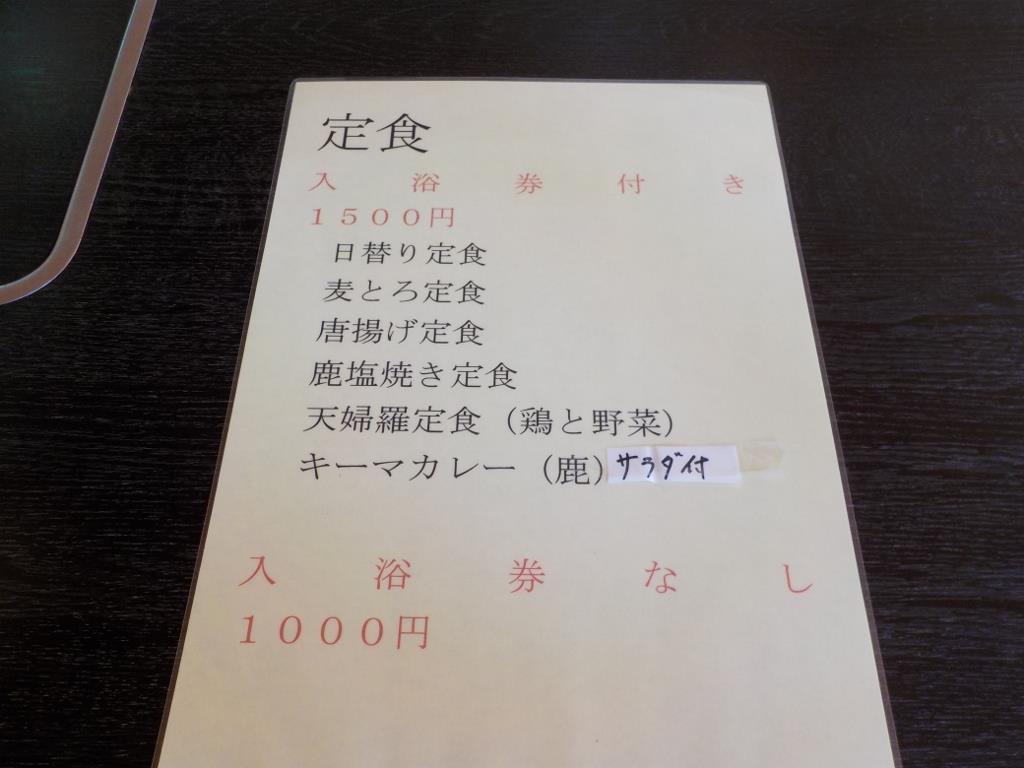 定食
入浴券付き
１５００円
日替り定食
麦とろ定食
唐揚げ定食
鹿塩焼き定食
天婦羅定食（鶏と野菜）
キーマカレー（鹿）サラダ付
入浴券なし
１０００円